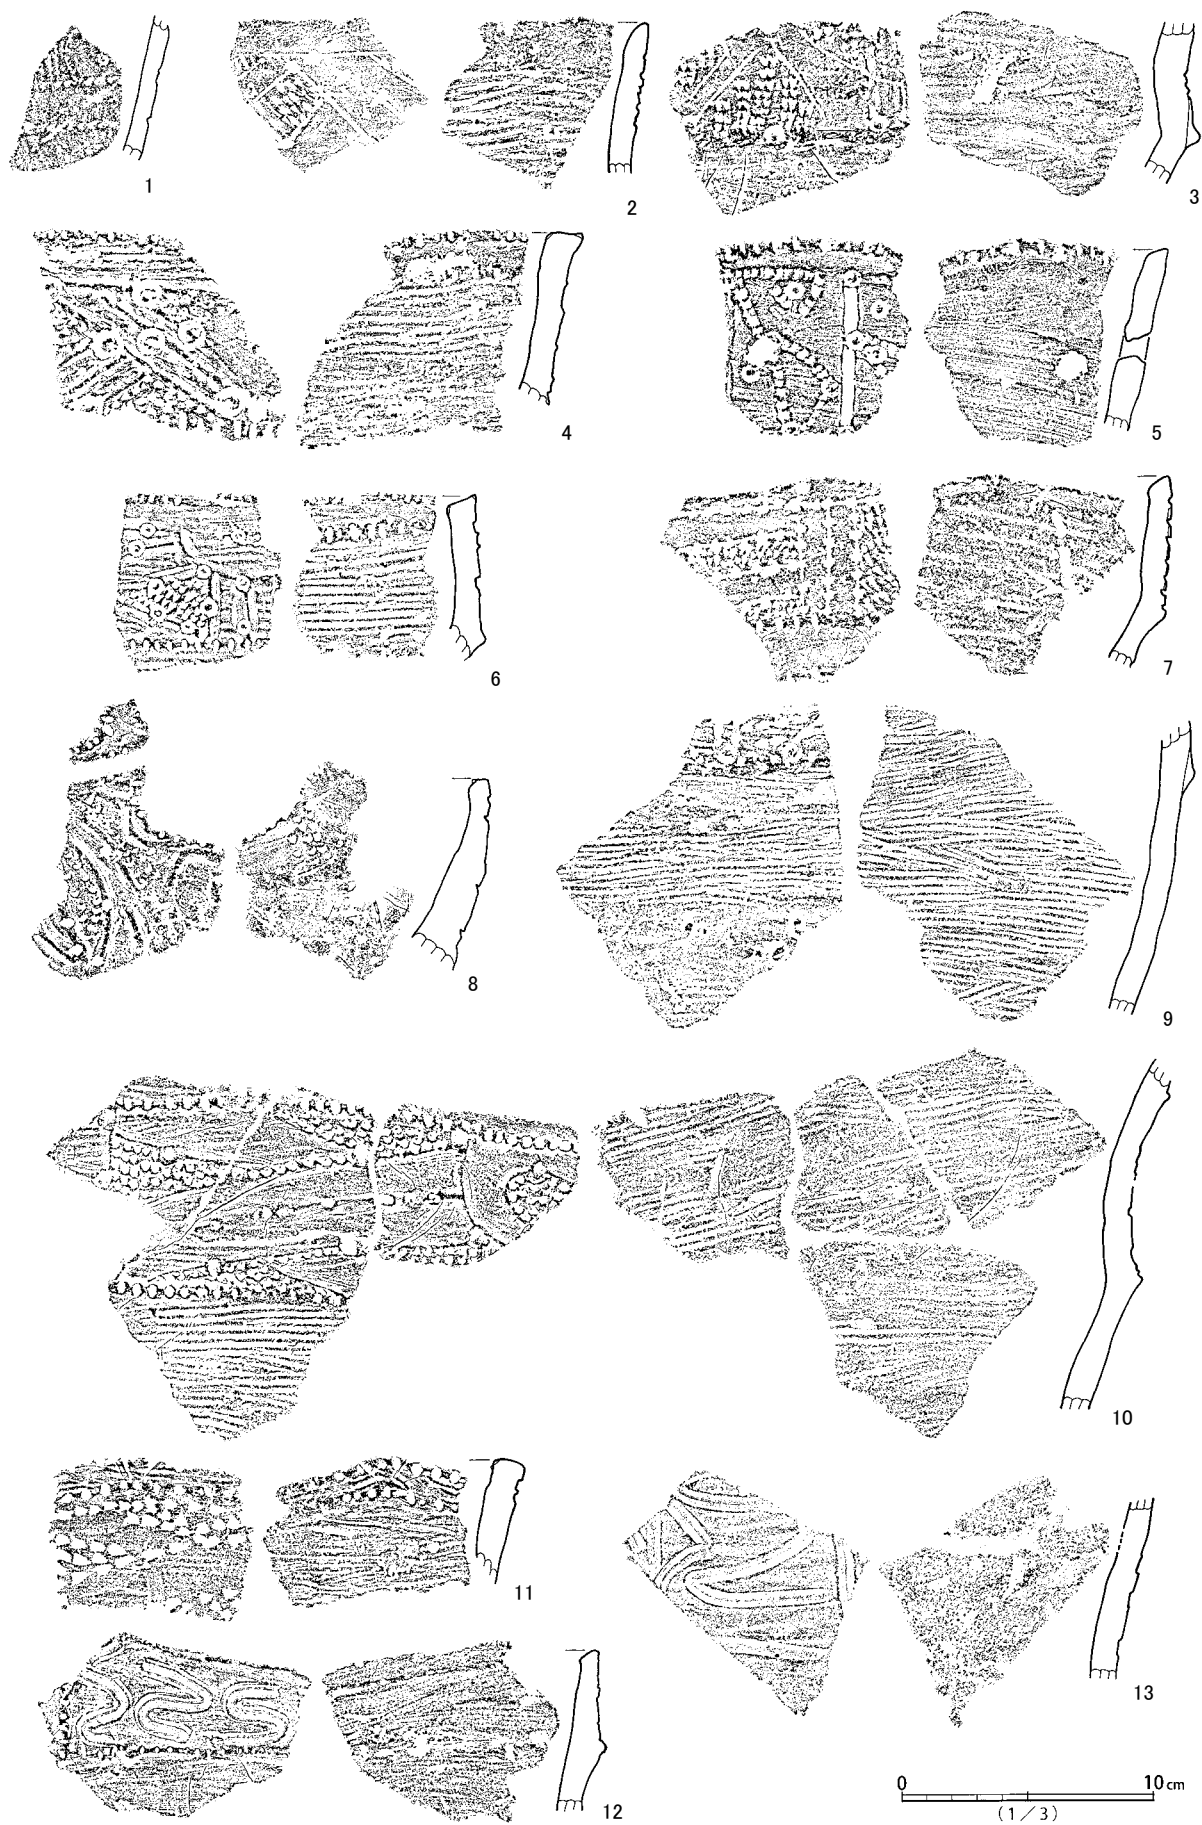 1
2
3
4
5
6
7
8
9
10
11
12
13
0 10cm
(1/3)